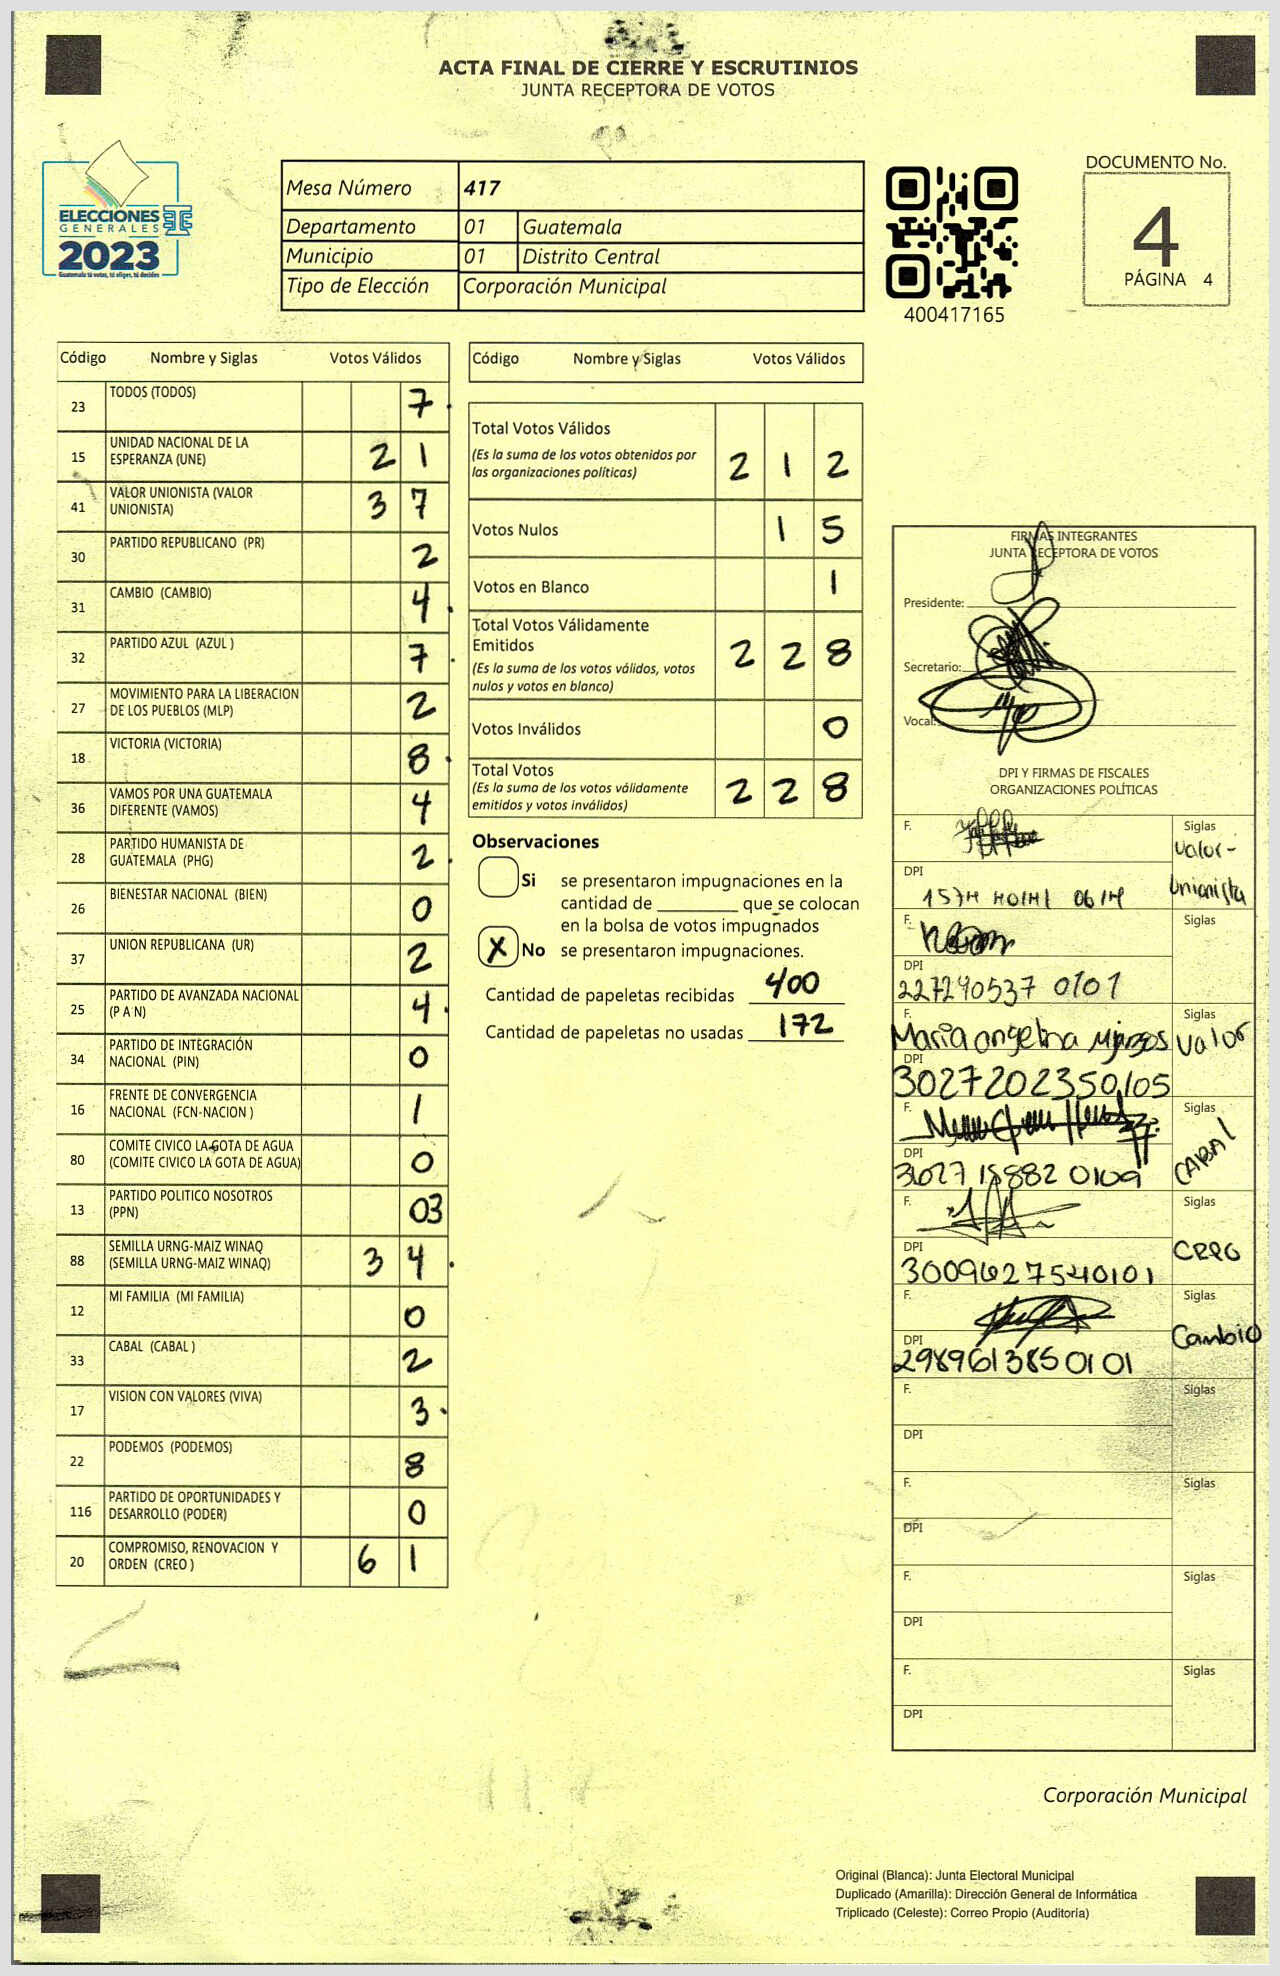 ACTA FINAL DE CIERRE Y ESCRUTINIOS
JUNTA RECEPTORA DE VOTOS
ELECCIONES
GENERALES
2023
Guatemala tú votas, tú eliges, tú decides
Mesa Número 417
Departamento 01 Guatemala
Municipio 01 Distrito Central
Tipo de Elección Corporación Municipal
400417165
DOCUMENTO No.
4
PÁGINA 4
Código Nombre y Siglas Votos Válidos
23 TODOS (TODOS) 7
15 UNIDAD NACIONAL DE LA
ESPERANZA (UNE) 2 1
41 VALOR UNIONISTA (VALOR
UNIONISTA) 3 7
30 PARTIDO REPUBLICANO (PR) 2
31 CAMBIO (CAMBIO) 4
32 PARTIDO AZUL (AZUL ) 7
27 MOVIMIENTO PARA LA LIBERACION
DE LOS PUEBLOS (MLP) 2
18 VICTORIA (VICTORIA) 8
36 VAMOS POR UNA GUATEMALA
DIFERENTE (VAMOS) 4
28 PARTIDO HUMANISTA DE
GUATEMALA (PHG) 2
26 BIENESTAR NACIONAL (BIEN) 0
37 UNION REPUBLICANA (UR) 2
25 PARTIDO DE AVANZADA NACIONAL
(P A N) 4
34 PARTIDO DE INTEGRACIÓN
NACIONAL (PIN) 0
16 FRENTE DE CONVERGENCIA
NACIONAL (FCN-NACION ) 1
80 COMITE CIVICO LA GOTA DE AGUA
(COMITE CIVICO LA GOTA DE AGUA) 0
13 PARTIDO POLITICO NOSOTROS
(PPN) 03
88 SEMILLA URNG-MAIZ WINAQ
(SEMILLA URNG-MAIZ WINAQ) 3 4
12 MI FAMILIA (MI FAMILIA) 0
33 CABAL (CABAL ) 2
17 VISION CON VALORES (VIVA) 3
22 PODEMOS (PODEMOS) 8
116 PARTIDO DE OPORTUNIDADES Y
DESARROLLO (PODER) 0
20 COMPROMISO, RENOVACION Y
ORDEN (CREO ) 6 1
Código Nombre y Siglas Votos Válidos
Total Votos Válidos
(Es la suma de los votos obtenidos por
las organizaciones políticas) 2 1 2
Votos Nulos 1 5
Votos en Blanco 1
Total Votos Válidamente
Emitidos
(Es la suma de los votos válidos, votos
nulos y votos en blanco) 2 2 8
Votos Inválidos 0
Total Votos
(Es la suma de los votos válidamente
emitidos y votos inválidos) 2 2 8
Observaciones
Si se presentaron impugnaciones en la
cantidad de ________ que se colocan
en la bolsa de votos impugnados
X No se presentaron impugnaciones.
Cantidad de papeletas recibidas 400
Cantidad de papeletas no usadas 172
FIRMAS INTEGRANTES
JUNTA RECEPTORA DE VOTOS
Presidente:
Secretario:
Vocal:
DPI Y FIRMAS DE FISCALES
ORGANIZACIONES POLÍTICAS
F. Siglas
Valor-
Unionista
DPI
F. Siglas
DPI
227290537 0101
F. Siglas
Maria angelina Valor
DPI
3027202350105
F. Siglas
CABAL
DPI
F. Siglas
CREO
DPI
3009627540101
F. Siglas
Cambio
DPI
2989613850101
F. Siglas
DPI
F. Siglas
DPI
F. Siglas
DPI
F. Siglas
DPI
Corporación Municipal
Original (Blanca): Junta Electoral Municipal
Duplicado (Amarilla): Dirección General de Informática
Triplicado (Celeste): Correo Propio (Auditoría)